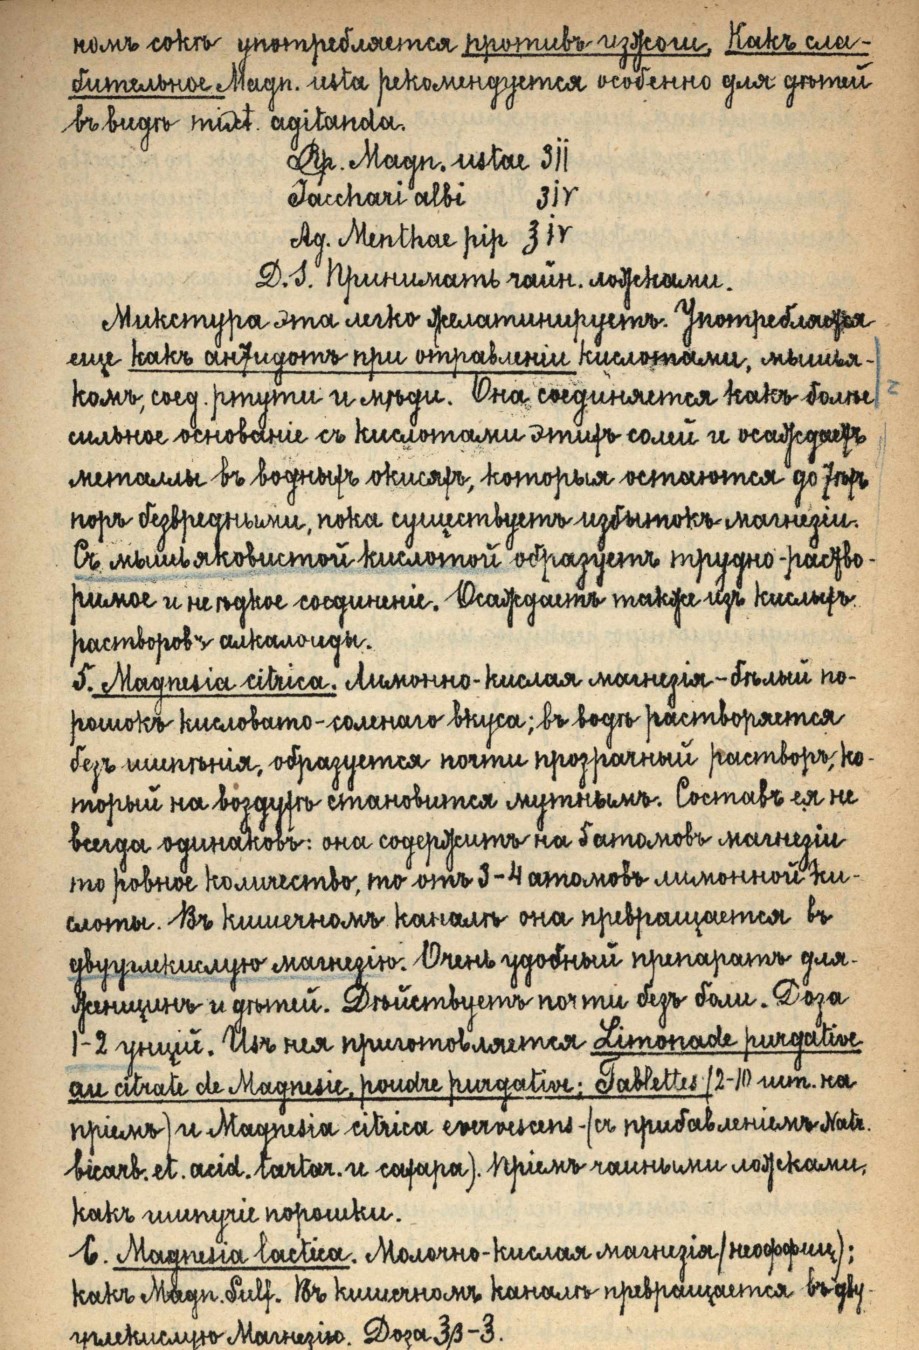 номъ сокѣ употребляется противъ изжоги. Какъ сла-
бительное Magn. usta рекомендуется особенно для дѣтей
въ видѣ mixt. agitanda.
Rp. Magn. ustae ʒii
Sacchari albi ʒiv
Aq. Menthae pip ℥iv
D.S. Принимать чайн. ложками.
Микстура эта легко желатинируетъ. Употребляется
еще какъ антидотъ при отравленіи кислотами, мышья-
комъ, соед. ртути и мѣди. Она соединяется какъ болѣе
сильное основаніе съ кислотами этихъ солей и осаждаетъ
металлы въ водныхъ окисяхъ, которыя остаются до тѣхъ
поръ безвредными, пока существуетъ избытокъ магнезіи.
Съ мышьяковистой кислотой образуетъ трудно-раство-
римое и неѣдкое соединеніе. Осаждаетъ также изъ кислыхъ
растворовъ алкалоиды.
5. Magnesia citrica. Лимонно-кислая магнезія – бѣлый по-
рошокъ кисловато-соленаго вкуса; въ водѣ растворяется
безъ шипѣнія, образуется почти прозрачный растворъ, ко-
торый на воздухѣ становится мутнымъ. Составъ ея не
всегда одинаковъ: она содержитъ на 6 атомовъ магнезіи
то ровное количество, то отъ 3-4 атомовъ лимонной ки-
слоты. Въ кишечномъ каналѣ она превращается въ
двууглекислую магнезію. Очень удобный препаратъ для-
женщинъ и дѣтей. Дѣйствуетъ почти безъ боли. Доза
1-2 унцій. Изъ нея приготовляется Limonade purgative
au citrate de Magnesie, poudre purgative; Tablettes (2-10 шт. на
пріемъ) и Magnesia citrica evervescens - (съ прибавленіемъ Natr.
bicarb. et. acid. tartar. и сахара). Пріемъ чайными ложками,
какъ шипучіе порошки.
6. Magnesia lactica. Молочно-кислая магнезія (неоффиц);
какъ Magn. Sulf. Въ кишечномъ каналѣ превращается въ дву-
углекислую Магнезію. Доза ʒβ-ʒ.